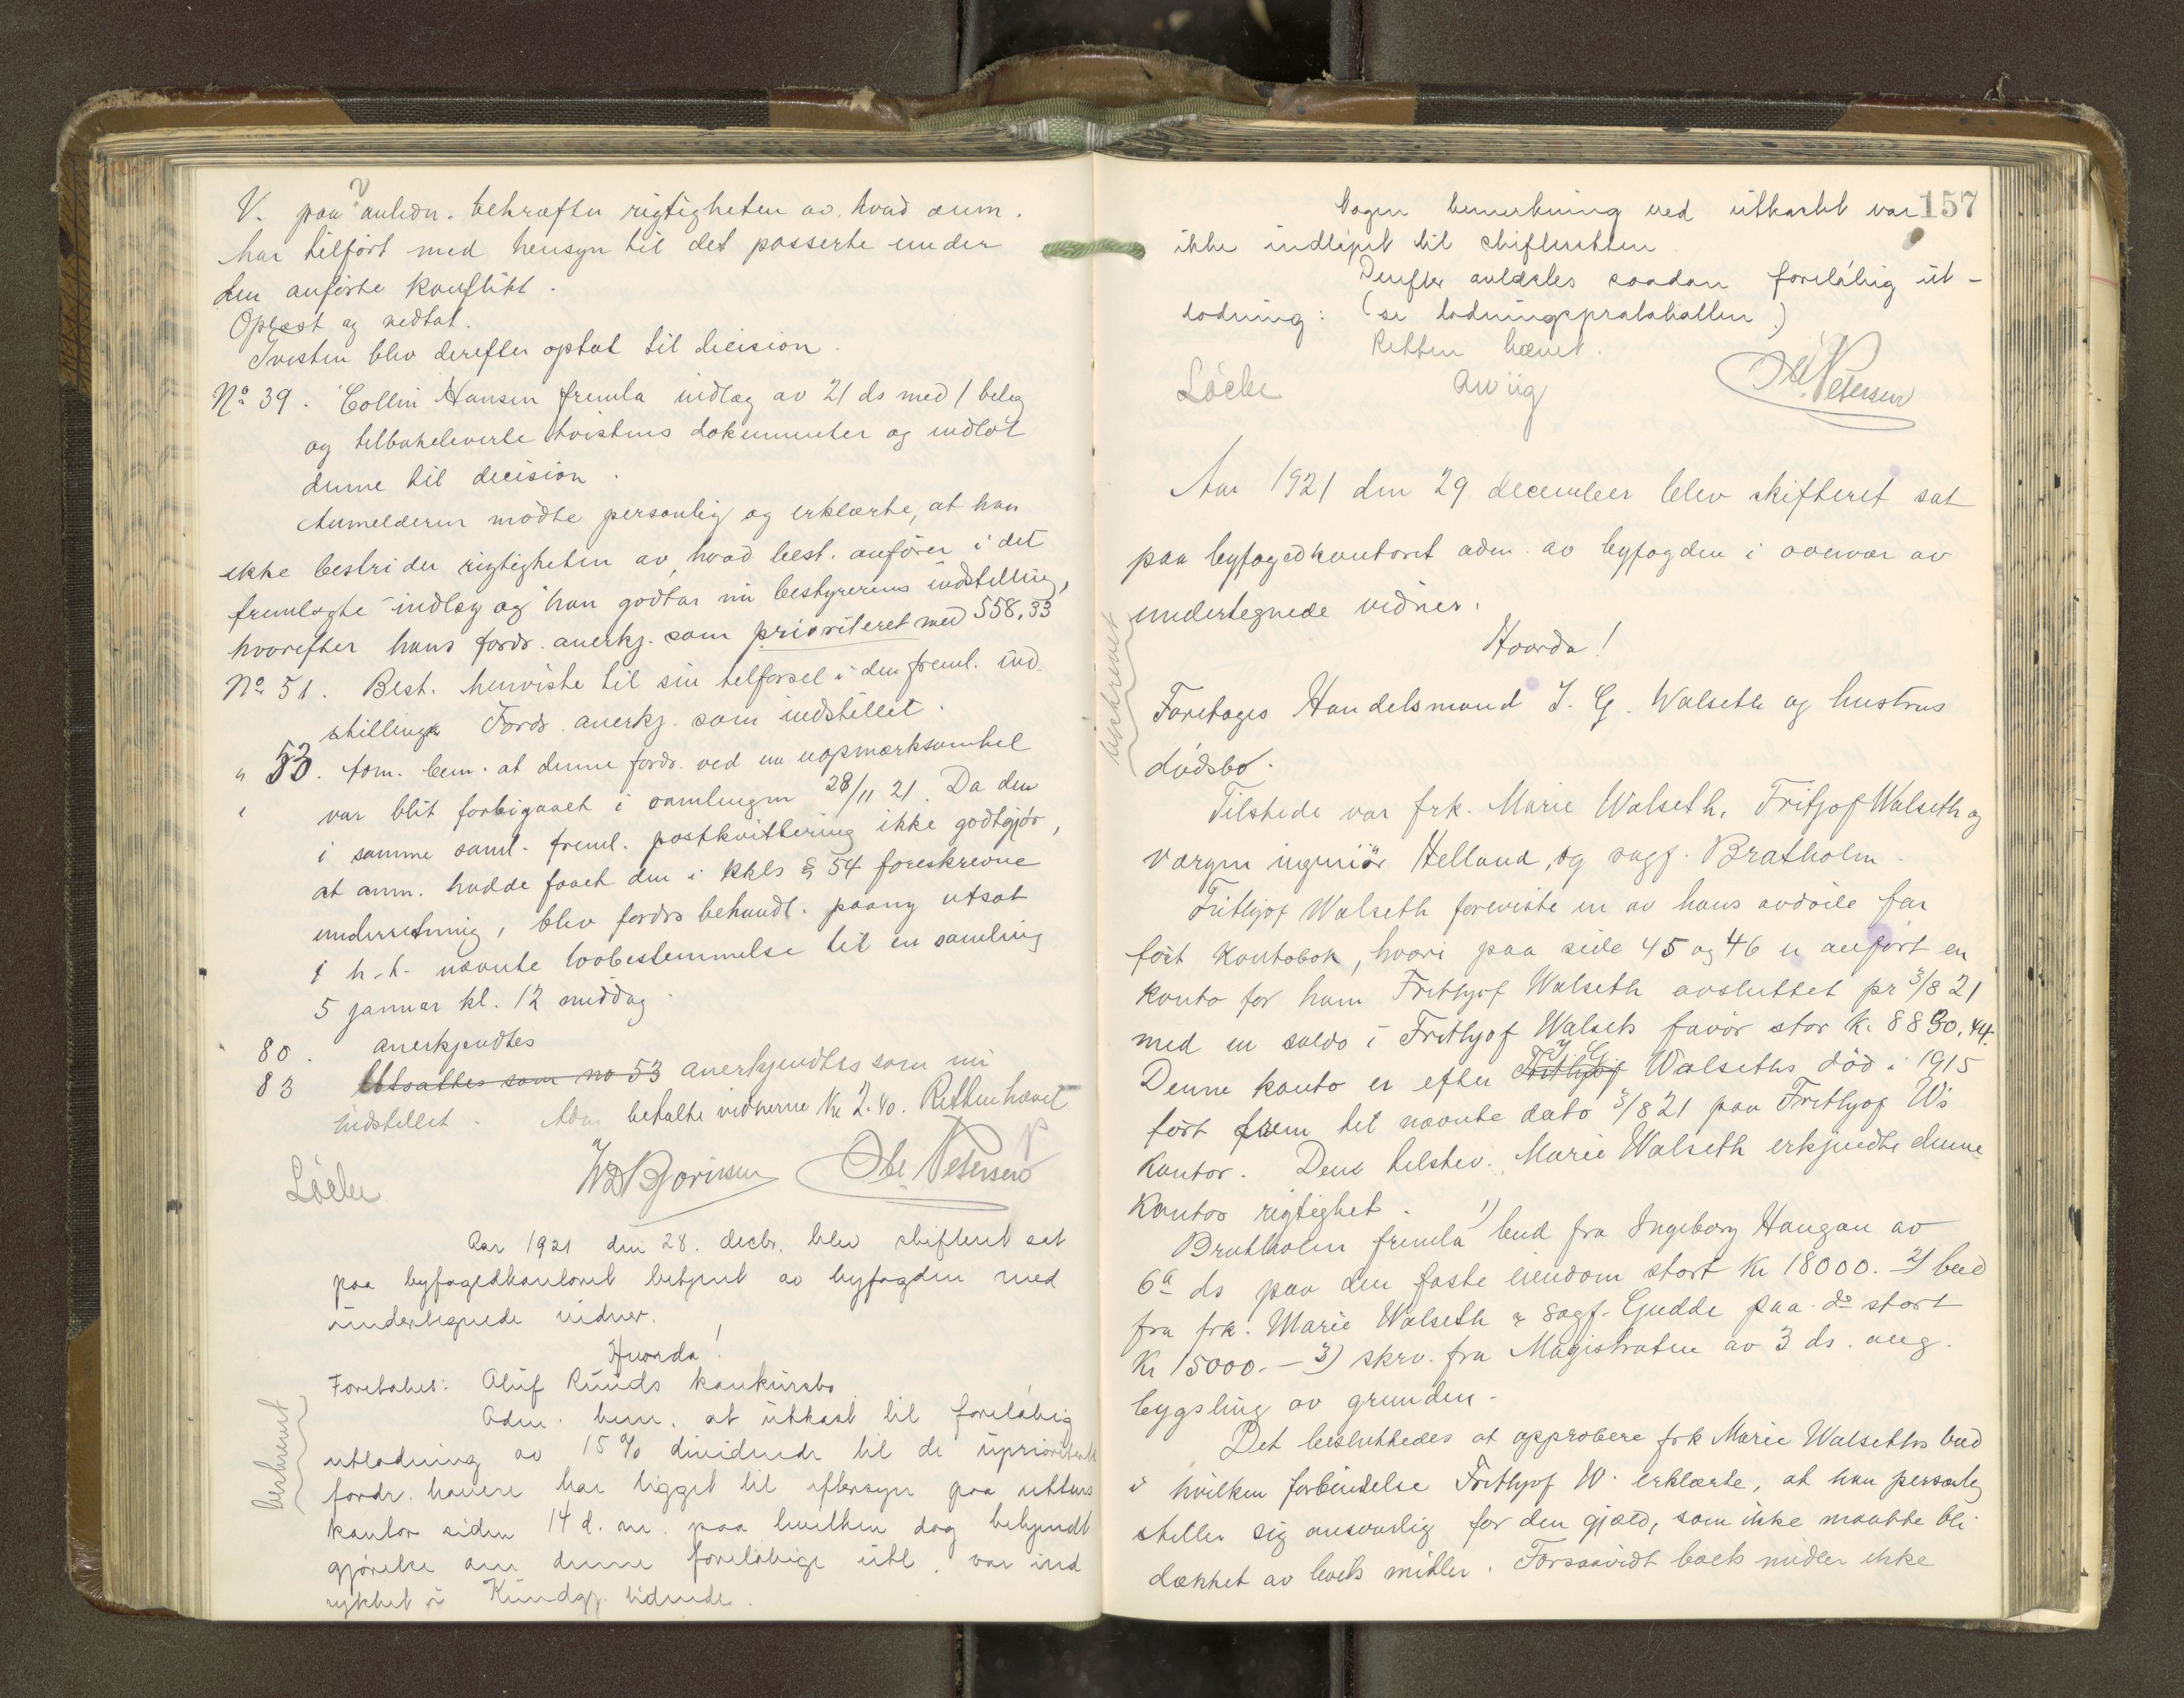 V. paa anledn. bekræfter rigtigheten av hvad anm.
har tilført med hensyn til det passerte under
den anførte konflikt.
Oplæst og vedtat.
Tvisten blev derefter optat til decision.
No 39. Collin Hansen fremla indlæg av 21 ds med 1 beleg
og tilbakeleverte tvistens dokumenter og indlot
denne til decision.
Anmelderen mødte personlig og erklærte, at han
ikke bestrider rigtigheten av, hvad best. anfører i det
fremlagte indlæg og han godtar nu bestyrerens indstilling,
hvorefter hans fordr. anerkj. som prioriteret med 558,33
No 51. Best. henviste til sin tilførsel i den freml. ind-
stilling. Fordr. anerkj. som indstillet.
" 53. Adm. bem. at denne fordr. ved en uopmærksomhet
var blit forbigaaet i samlingen 28/11 21. Da den
i samme saml. freml. postkvittering ikke godtgjør,
at anm. hadde faaet den i kkls § 54 foreskrevne
underretning, blev fordrs behandl. paany utsat
i h. t. nævnte lovbestemmelse til en samling
5 januar kl. 12 middag.
80. anerkjendtes
83 Utsattes som no 53 anerkjendtes som nu
indstillet. Adm betalte vidnerne Kr 2.40. Retten hævet
Löcke W Bjørnsen Ole Petersen
Aar 1921 den 28. decbr. blev skifteret sat
paa byfogedkontoret betjent av byfogden med
undertegnede vidner.
Hvorda!
Foretokes: Oluf Ruuds konkursbo
Adm. bem. at utkast til foreløbig
utlodning av 15 % dividende til de uprioriterte
fordr. havere har ligget til eftersyn paa rettens
kontor siden 14 d. m. paa hvilken dag bekjendt
gjørelse om denne foreløbige utl. var ind
rykket i Kundgj. tidende.
beskrevet
157
Nogen bemerkning ved utkastet var
ikke indløpet til skifteretten.
Derefter avldes saadan foreløbig ut-
lodning: (se lodningsprotokollen.)
Retten hævet.
Löcke Ole Petersen
Aar 1921 den 29 december blev skifteret sat
paa byfogedkontoret adm. av byfogden i overvær av
undertegnede vidner.
Hvorda!
beskrevet
Foretoges Handelsmand J. G. Walseth og hustrus
dødsbo.
Tilstede var frk. Marie Walseth, Fritjof Walseth og
værgen ingeniør Helland, og sagf. Bratholm.
Frithjof Walseth foreviste en av hans avdøde far
ført kontobok, hvori paa side 45 og 46 er anført en
konto for ham Frithjof Walseth avsluttet pr 3/8 21
med en saldo i Frithjof Walseths favør stor kr. 8890.44.
Denne konto er efter Frithjof J. G. Walseths død i 1915
ført frem til nævnte dato 3/8 21 paa Frithjof Ws
kontor. Den tilstev. Marie Walseth erkjendte denne
kontos rigtighet.
Bratholm fremla 1) bud fra Ingeborg Haugan av
6a ds paa den faste eiendom stort Kr 18000. 2) bud
fra frk. Marie Walseth v sagf. Gudde paa do stort
Kr 15000. - 3) skrv. fra Magistraten av 3 ds. ang.
bygsling av grunden.
Det besluttedes at approbere frk Marie Walseths bud
i hvilken forbindelse Frithjof W. erklærte, at han personlig
stiller sig ansvarlig for den gjæld, som ikke maatte bli
dækket av boets midler. Forsaavidt boets midler ikke